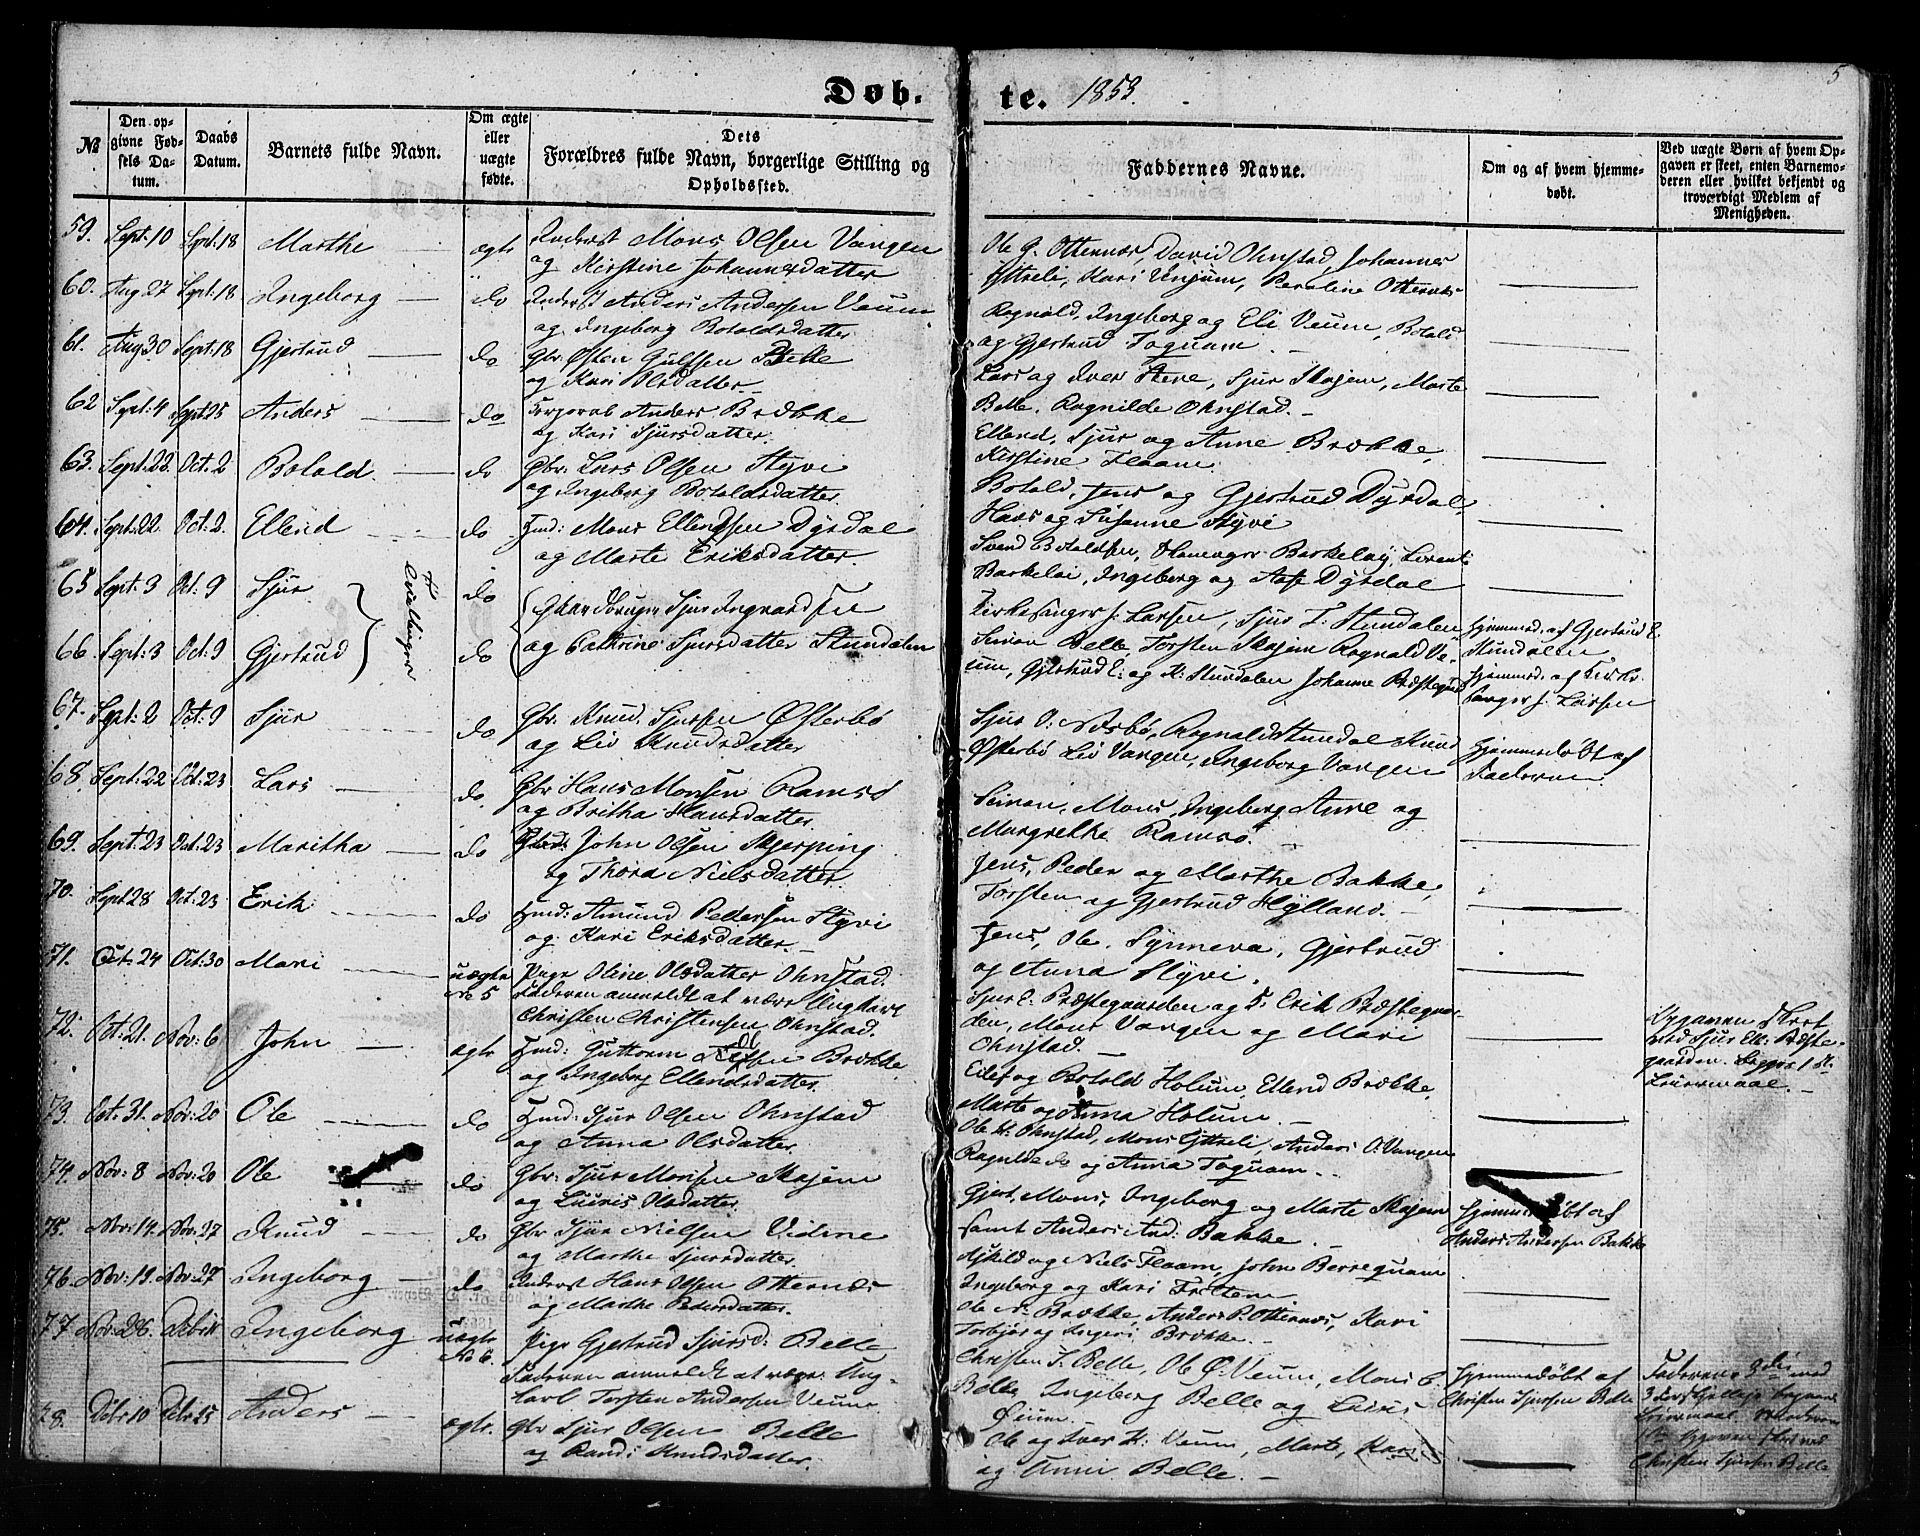 5
Døb. te. 1853.
№
Den opgivne Fødsels Datum.
Daabs Datum.
Barnets fulde Navn.
Om ægte eller uægte fødte.
Dets Forældres fulde Navn, borgerlige Stilling og Opholdssted.
Faddernes Navne.
Om og af hvem hjemmedøbt.
Ved uægte Børn af hvem Opgaven er skeet, enten Barnemoderen eller hvilket bekjendt og troværdigt Medlem af Menigheden.
59. Sept. 10 Sept. 18 Marthe ægte Inderst Mons Olsen Vangen
og Kirstine Johannesdatter
Ole G. Otternæs, David Ohnstad, Johannes
Ytreli, Kari Unjum, Caroline Otternæs
60. Aug 27 Sept: 18 Ingeborg do Inderst Anders Andersen Veum
og Ingeborg Botoldsdatter
Ragnald, Ingeborg og Eli Veum, Botold
og Gjertrud Foquam. —
61. Aug 30 Sept: 18 Gjertrud do Gbr. Østen Gulfsen Belle
og Kari Olsdatter
Lars og Iver Stene, Sjur Skajem, Marte
Belle, Ragnilde Ohnstad. —
62 Sept: 4 Sept 25 Anders do Anders Brække
og Kari Sjursdatter.
Ellend, Sjur og Anne Brække,
Kirstine Flaam.
63. Sept: 22. Oct: 2 Botold do Gbr. Lars Olsen Styvi
og Ingeborg Botoldsdatter
Botold, Jens og Gjertrud Dyrdal,
Hans og Susanne Styvi
64. Sept: 22 Oct: 2. Ellend do Hmd: Mons Ellendsen Dyrdal
og Marte Eriksdatter.
Svend Botoldsen,
Ingeborg og Aase Dyrdal
65 Sept: 3 Oct: 9 Sjur Tvillinger do Gaardbruger Sjur Ingvardsen
66. Sept: 3 Oct: 9 Gjertrud do og Cathrine Sjursdatter Stundalen
Kirkesanger J. Larsen, Sjur T. Stundalen
Simon Belle, Torsten Skajem Ragnald Ve-
um, Gjertrud E: og K: Stundalen Johanne Præstegaard
Hjemmed. af Gjertrud E.
Stundalen
Hjemmed. af Kirke-
sanger J: Larsen
67. Sept: 2 Oct: 9 Sjur do Gbr. Knud Sjursen Østerbø
og Liv Knudsdatter
Sjur O: Næsbø, Ragnald Stundal Knud
Østerbø Liv Vangen, Ingeborg Vangen
Hjemmedøbt af
Faderen
68. Sept: 22 Oct: 23 Lars do Gbr Hans Monsen Ramsø
og Britha Hansdatter
Simon, Mons, Ingeborg Anne og
Margrethe Ramsø.
69. Sept: 23 Oct: 23 Maritha do John Olsen Skjerping
og Thora Nielsdatter.
Jens, Peder og Marthe Bakke,
Torsten og Gjertrud Hylland. —
70. Sept 28 Oct: 23 Erik do Hmd: Amund Pedersen Styvi
og Kari Eriksdatter. —
Jens, Ole, Synneva, Gjertrud
og Anna Styvi.
71. Oct: 24 Oct: 30 Mari uægte № 5 Pige Oline Olsdatter Ohnstad.
Faderen anmeldt at være Ungkarl
Christen Christensen Ohnstad.
Sjur E. Præstegaarden og S. Erik Præstegaar-
den, Mons Vangen og Mari
Ohnstad. —
Opgaven skeet
ved Sjur Ell: Præste-
gaarden. Begges 1ste
Leiermaal. —
72. Oct: 21. Nov: 6 John ægte Hmd: Guttorm Brække
og Ingeborg Ellendsdatter.
Eilef og Botold Holum, Ellend Brække,
Marte og Anna Holum. —
73. Oct: 31. Nov: 20 Ole do Hmd: Sjur Olsen Ohnstad
og Anna Olsdatter.
Ole K. Ohnstad, Mons Ytreli, Anders O: Vangen
Ragnilde do og Anna Foquam. —
74. Nov: 8 Nov: 20 Ole do Gbr: Sjur Monsen Skajem
og Luuris Olsdatter.
Gjert, Mons, Ingeborg og Marte Skajem
samt Anders And: Bakke. —
Hjemmedøbt af
Anders Andersen Bakke
75. Nov: 14. Nov: 27 Knud do Gbr Sjur Nielsen Vidme
og Marthe Sjursdatter.
Askild og Niels Flaam, John Berrequam
Ingeborg og Kari Fretem
76. Nov: 19. Nov: 27 Ingeborg do Inderst Hans Olsen Otternæs
og Marthe Pedersdatter.
Ole N. Brække, Anders P. Otternæs, Kari
Torbjør og Ingeri Brække. —
77 Nov: 26. Ingeborg uægte № 6. Pige Gjertrud Sjursd: Belle
Faderen anmeldt at være Ung-
karl Torsten Andersen Veum
Christen S. Belle, Ole Ø. Veum, Mons
Belle, Ingeborg Belle og Luuris
Øium. —
Hjemmedøbt af
Christen Sjursen Belle
Faderens 3die med
3 Leiermaal.
Opgaven skeet ved
Christen Sjursen Belle
78. Debr 10 Debr 25 Anders ægte. Gbr Sjur Olsen Belle
og Randi Knudsdatter.
Ole og Iver K: Veum, Marte, Kari
og Anni Belle. —